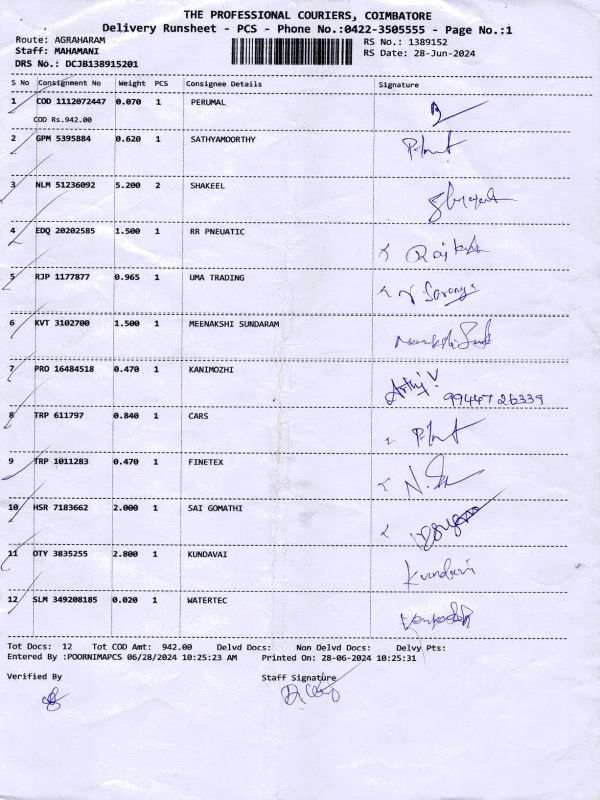 THE PROFESSIONAL COURIERS, COIMBATORE
Delivery Runsheet - PCS - Phone No.:0422-3505555 - Page No.:1
Route: AGRAHARAM RS No.: 1389152
Staff: MAHAMANI RS Date: 28-Jun-2024
DRS No.: DCJB138915201
S No Consignment No Weight PCS Consignee Details Signature
1 COD 1112072447 0.070 1 PERUMAL
COD Rs.942.00
2 GPM 5395884 0.620 1 SATHYAMOORTHY
3 NLM 51236092 5.200 2 SHAKEEL
4 EDQ 20202585 1.500 1 RR PNEUATIC
5 RJP 1177877 0.965 1 UMA TRADING
6 KVT 3102700 1.500 1 MEENAKSHI SUNDARAM
7 PRO 16484518 0.470 1 KANIMOZHI
99447 26339
8 TRP 611797 0.840 1 CARS
9 TRP 1011283 0.470 1 FINETEX
10 HSR 7183662 2.000 1 SAI GOMATHI
11 OTY 3835255 2.800 1 KUNDAVAI Kundavi
12 SLM 349208185 0.020 1 WATERTEC
Tot Docs: 12 Tot COD Amt: 942.00 Delvd Docs: Non Delvd Docs: Delvy Pts:
Entered By :POORNIMAPCS 06/28/2024 10:25:23 AM Printed On: 28-06-2024 10:25:31
Verified By Staff Signature